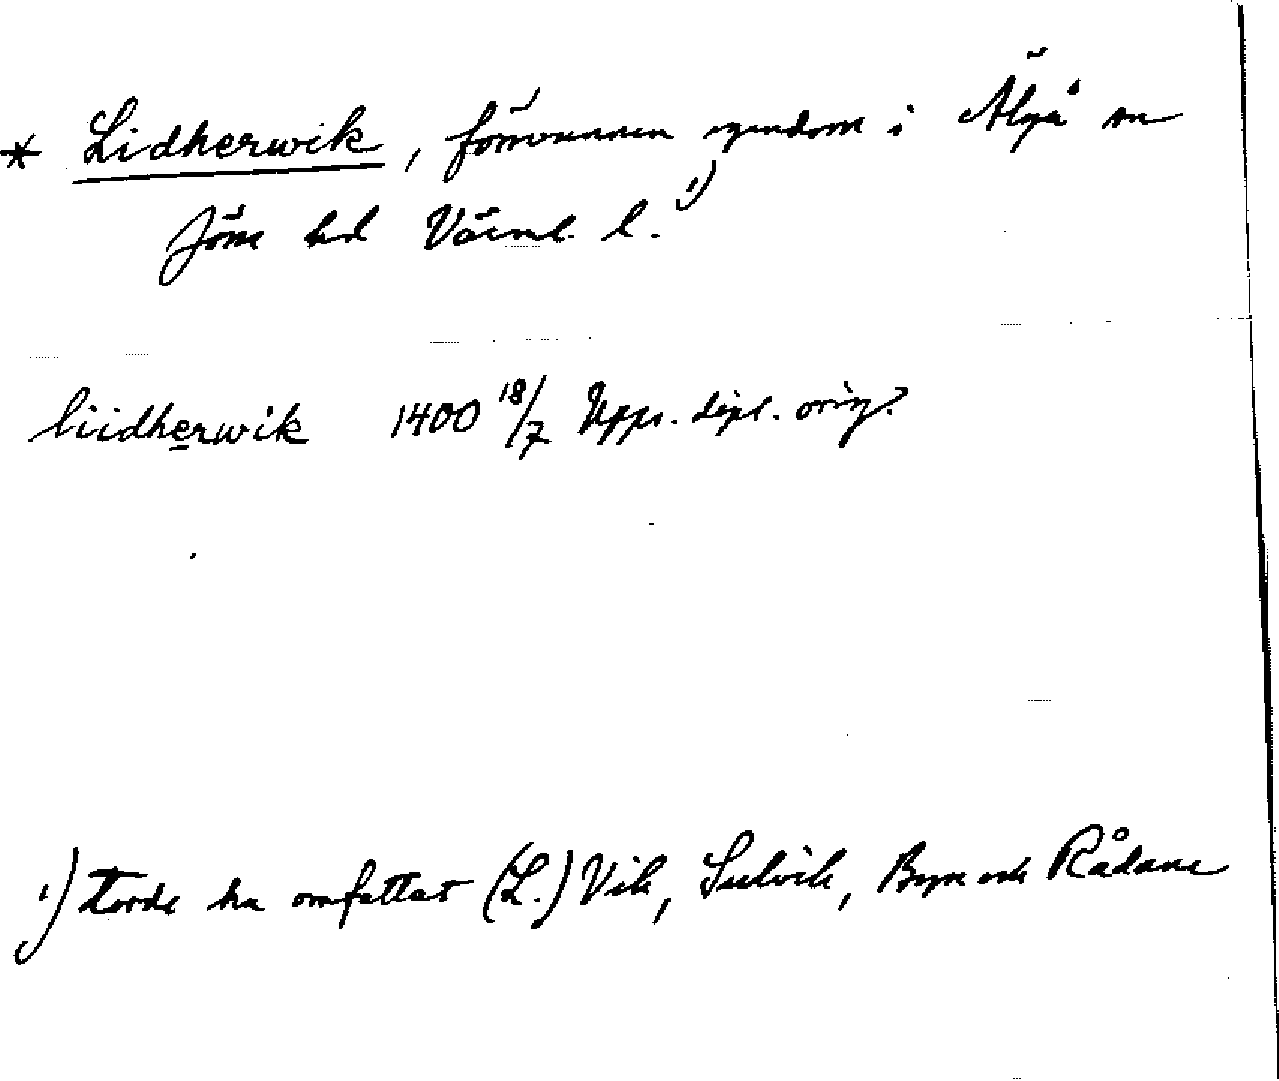 * Lidherwik, försvunnen egendom i Älgå sn
Jösse hd Värml. l. 1)
liidherwik 1400 18/7 Upps. dipl. orig.
1) torde ha omfattat (L.) Vik, Sulvik, Byn och Rådane